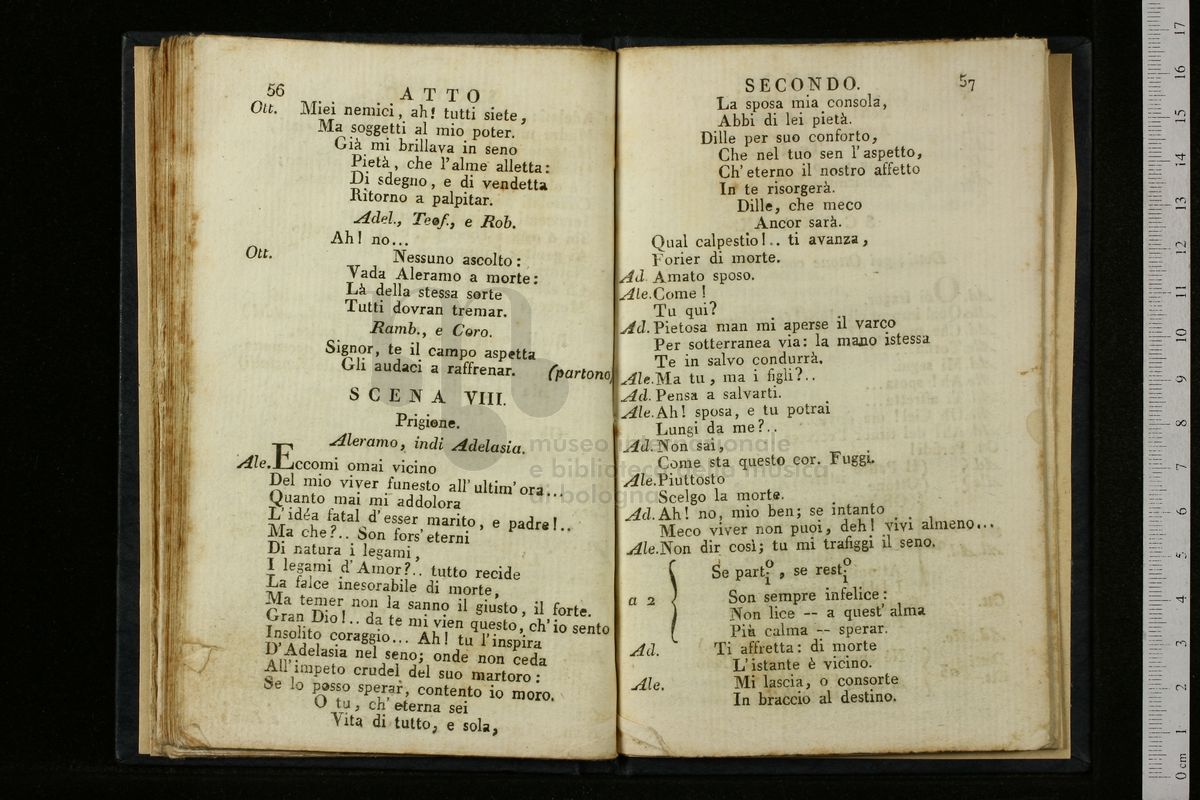 56
ATTO
Ott. Miei nemici, ah! tutti siete,
Ma soggetti al mio poter.
Già mi brillava in seno
Pietà, che l'alme alletta:
Di sdegno, e di vendetta
Ritorno a palpitar.
Adel., Teof., e Rob.
Ah! no...
Ott. Nessuno ascolto:
Vada Aleramo a morte:
Là della stessa sorte
Tutti dovran tremar.
Ramb., e Coro.
Signor, te il campo aspetta
Gli audaci a raffrenar. (partono
SCENA VIII.
Prigione.
Aleramo, indi Adelasia.
Ale. Eccomi omai vicino
Del mio viver funesto all'ultim'ora...
Quanto mai mi addolora
L'idéa fatal d'esser marito, e padre!..
Ma che?.. Son fors'eterni
Di natura i legami,
I legami d'Amor?.. tutto recide
La falce inesorabile di morte,
Ma temer non la sanno il giusto, il forte.
Gran Dio!.. da te mi vien questo, ch'io sento
Insolito coraggio... Ah! tu l'inspira
D'Adelasia nel seno; onde non ceda
All'impeto crudel del suo martoro:
Se lo posso sperar, contento io moro.
O tu, ch'eterna sei
Vita di tutto, e sola,
SECONDO. 57
La sposa mia consola,
Abbi di lei pietà.
Dille per suo conforto,
Che nel tuo sen l'aspetto,
Ch'eterno il nostro affetto
In te risorgerà.
Dille, che meco
Ancor sarà.
Qual calpestio!.. ti avanza,
Forier di morte.
Ad. Amato sposo.
Ale. Come!
Tu qui?
Ad. Pietosa man mi aperse il varco
Per sotterranea via: la mano istessa
Te in salvo condurrà.
Ale. Ma tu, ma i figli?..
Ad. Pensa a salvarti.
Ale. Ah! sposa, e tu potrai
Lungi da me?..
Ad. Non sai,
Come sta questo cor. Fuggi.
Ale. Piuttosto
Scelgo la morte.
Ad. Ah! no, mio ben; se intanto
Meco viver non puoi, deh! vivi almeno...
Ale. Non dir così; tu mi trafiggi il seno.
Se part o/i, se rest o/i
a 2 Son sempre infelice:
Non lice -- a quest'alma
Più calma -- sperar.
Ad. Ti affretta: di morte
L'istante è vicino.
Ale. Mi lascia, o consorte
In braccio al destino.
museo internazionale
e biblioteca della musica
di bologna
0 cm 1 2 3 4 5 6 7 8 9 10 11 12 13 14 15 16 17